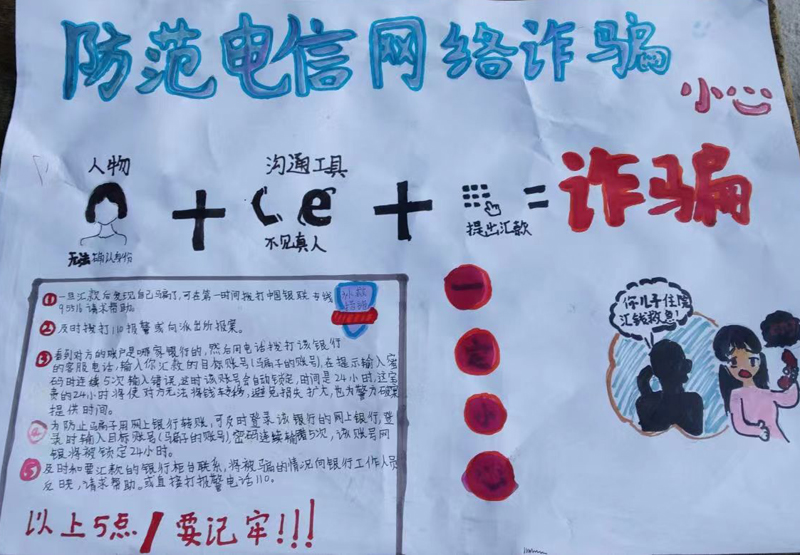 防范电信网络诈骗
小心
人物
沟通工具
无法确认身份
不见真人
提出汇款
+
+
=
诈骗
补救措施
①一旦汇款后发现自己骗了,可在第一时间拨打中国银联专线
95516请求帮助。
②及时拨打110报警或向派出所报案。
③看到对方的账户是哪家银行的,然后用电话拨打该银行
的客服电话,输入你汇款的目标账号(马扁子的账号),在提示输入密
码时连续5次输入错误,此时该账号会自动锁定,时间是24小时,这宝
贵的24小时将使对方无法将钱转移,避免损失扩大,也为警方破案
提供时间。
④为防止马扁子用网上银行转账,可及时登录该银行的网上银行,登
录时输入目标账号(马扁子的账号),密码连续输错5次,该账号网
银将被锁定24小时。
⑤及时和要汇款的银行柜台联系,将被骗的情况向银行工作人员
反映,请求帮助。或直接打报警电话110.
以上5点/要记牢!!!
一
定
小
你儿子住院
汇钱救急!